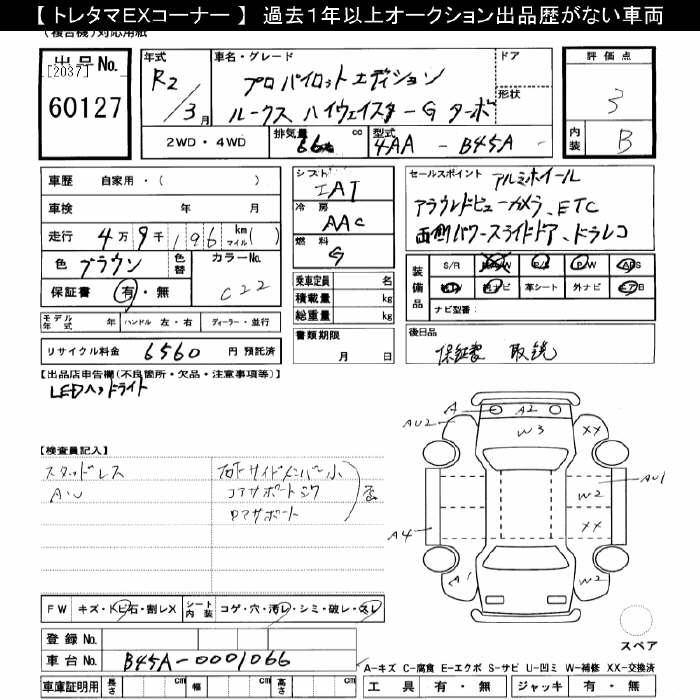 【 トレタマEXコーナー 】 過去1年以上オークション出品歴がない車両
(複合機)対応用紙
出品No.
[2037]
60127
年式
R2/3月
車名・グレード
プロパイロットエディション
ルークス ハイウェイスターG ターボ
ドア
形状
2WD・4WD
排気量
660 cc
型式
4AA - B45A -
評価点
3
内装
B
車歴 自家用・( )
車検 年 月
走行 4万9千196 km マイル( )
色 ブラウン
色替
カラーNo.
C22
保証書 有・無
モデル年式 年
ハンドル 左・右
ディーラー・並行
リサイクル料金 6560 円 預託済
シフト
IAT
冷房
AAC
燃料
G
乗車定員 名
積載量 kg
総重量 kg
書類期限
月 日
セールスポイント アルミホイール
アラウンドビューカメラ、ETC
両側パワースライドドア、ドラレコ
装備品
S/R P/S P/W ABS
ナビ 革シート 外ナビ
ナビ型番:
後日品
保証書 取説
【出品店申告欄(不良箇所・欠品・注意事項等)】
LEDヘッドライト
【検査員記入】
スタッドレス
AU
右下サイドメンバー小
コアサポート
ロアサポート
A
A2
W3
AU2
XX
AU1
W2
XX
A4
A1
W2
スペア
FW キズ・トビ石・割レX
シート内装 コゲ・穴・汚レ・シミ・破レ・スレ
登録 No.
車台 No. B45A-0001066
車庫証明用 長さ cm 幅 cm 高さ cm
A-キズ C-腐食 E-エクボ S-サビ U-凹ミ W-補修 XX-交換済
工具 有・無 ジャッキ 有・無